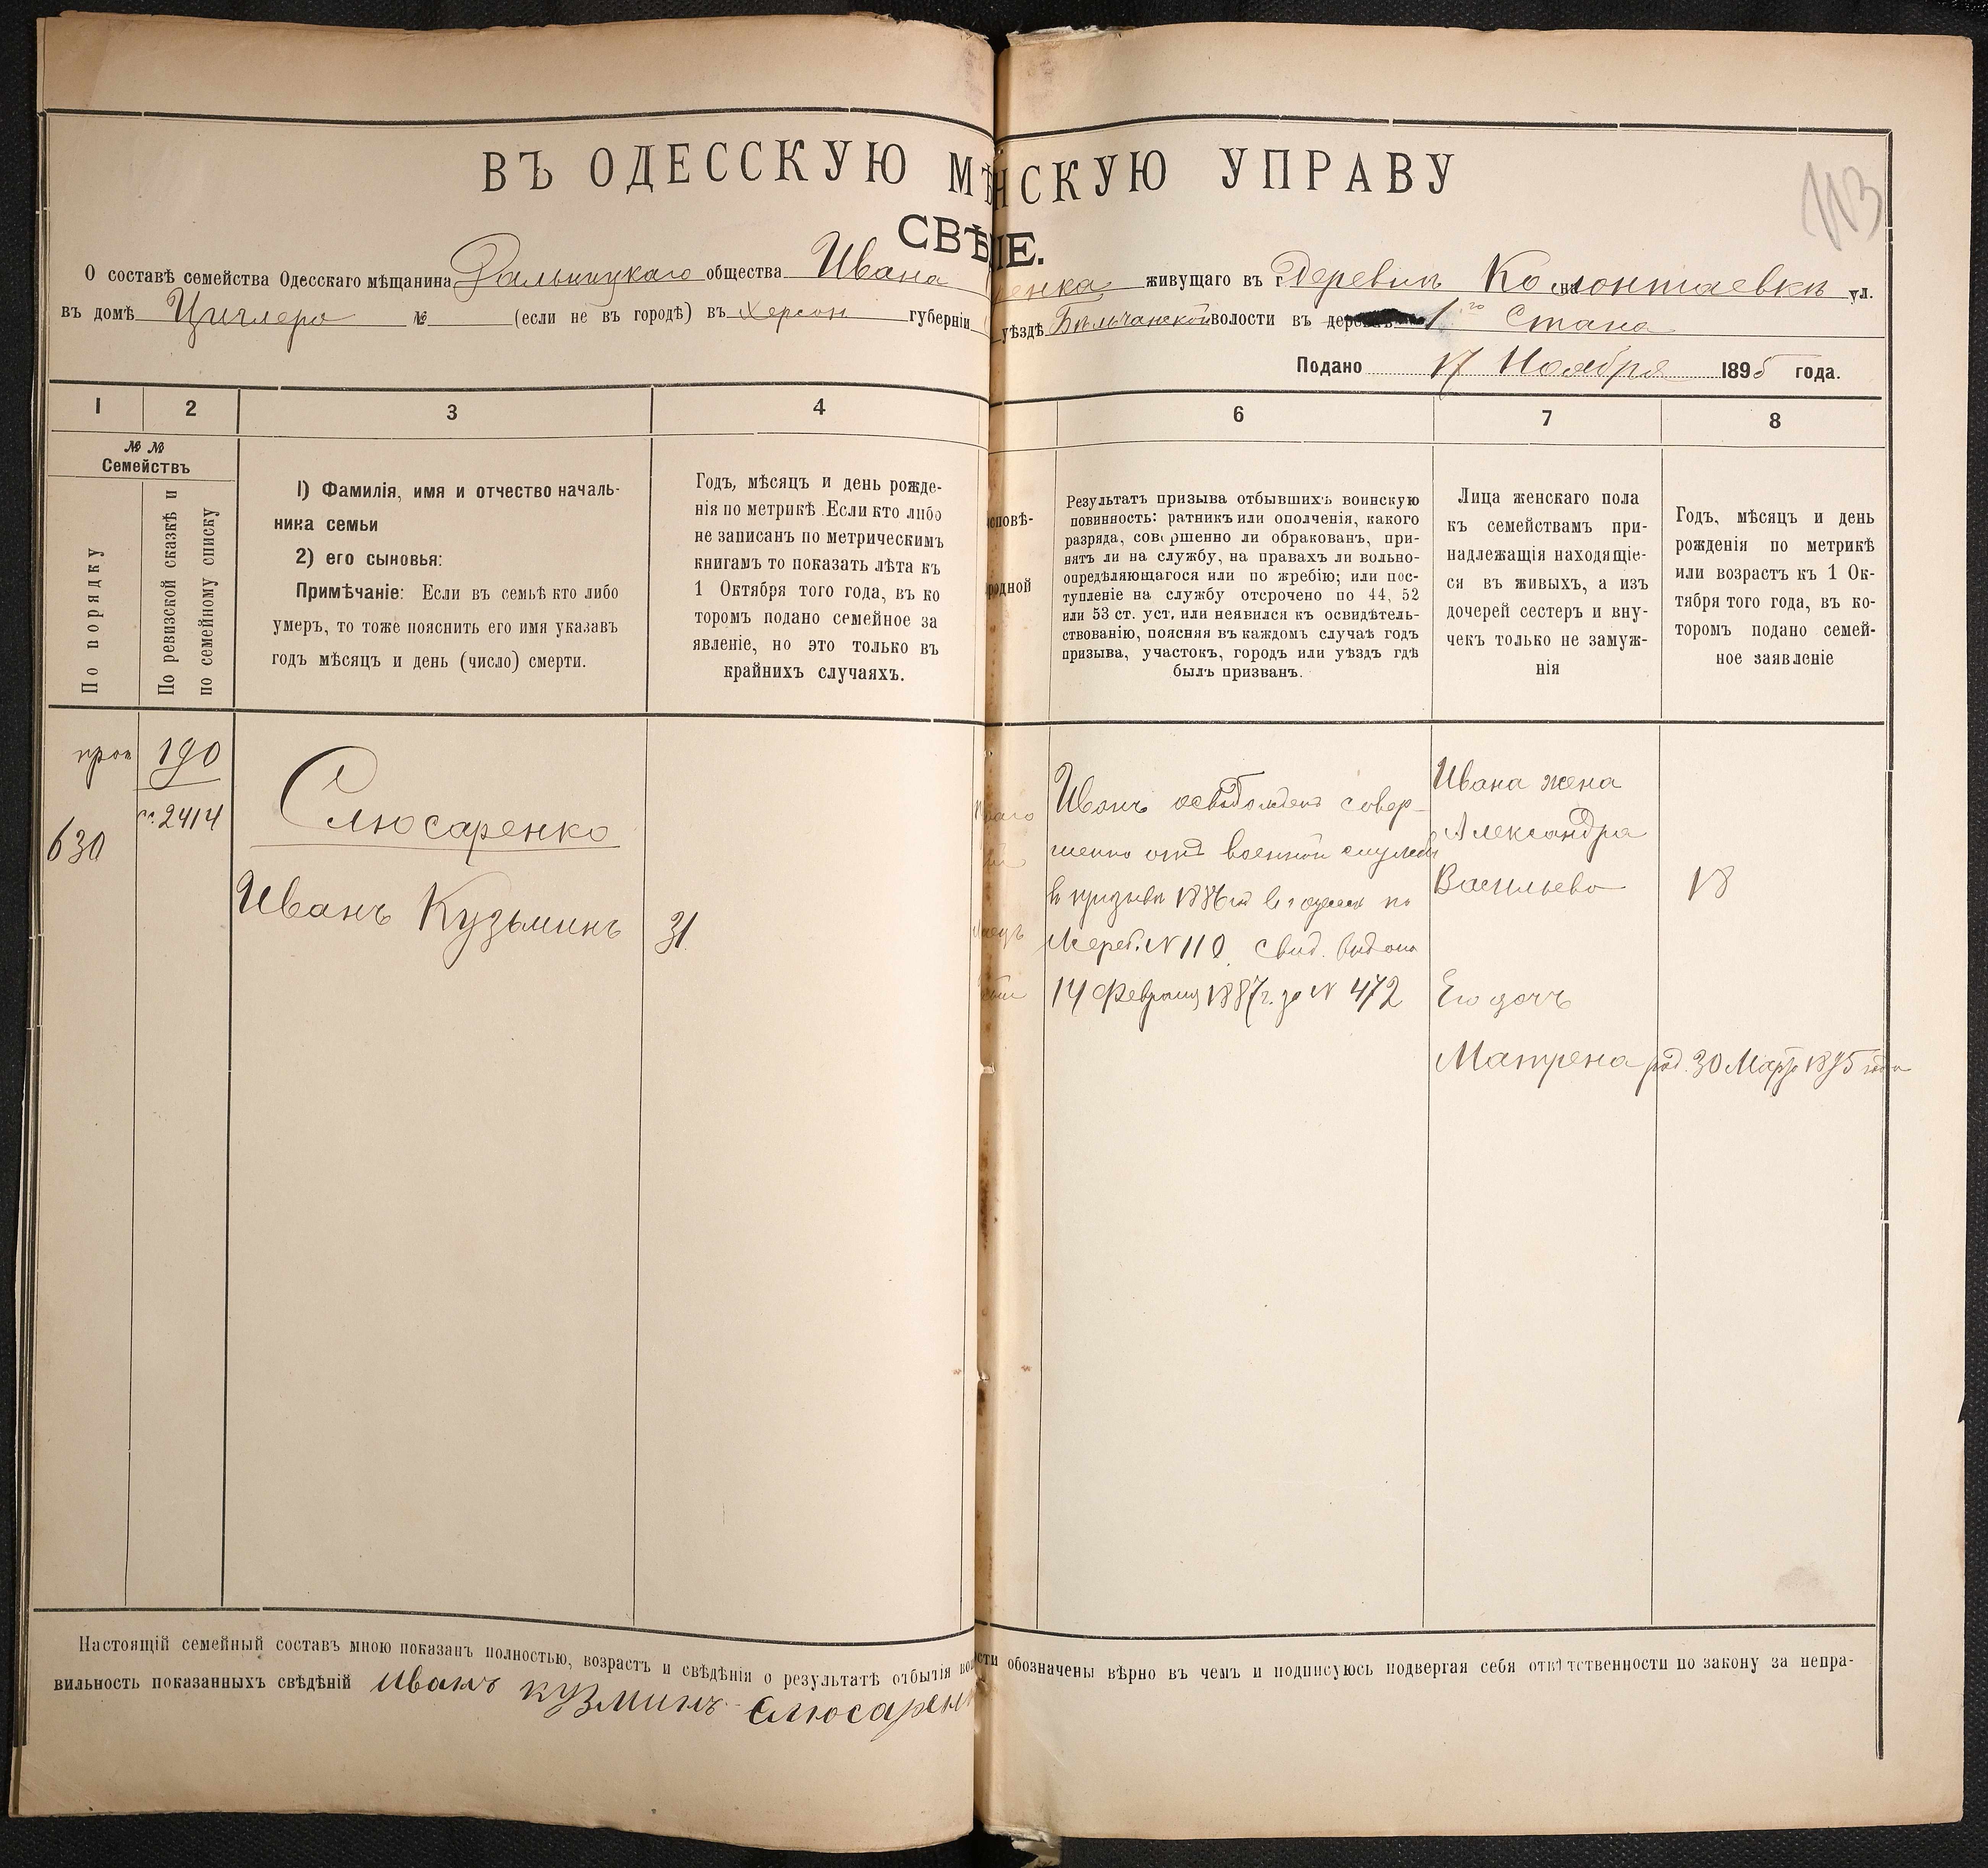 ВЪ ОДЕССКУЮ МѢ НСКУЮ УПРАВУ
113
СВѢ ІЕ.
О составѣ семейства Одесскаго мѣщанина Дальницкаго общества Ивана енка живущаго въ г Деревнѣ на Колонтаевкѣ ул.
въ домѣ Циглера № (если не въ городѣ) въ Херсон губерніи уѣздѣ Бѣльчанской волости въ 1го Стана
Подано 17 Ноября 1895 года.
1 2 3 4 6 7 8
№ №
Семействъ
По порядку
По ревизской сказкѣ и
по семейному списку
1) Фамилія, имя и отчество началь-
ника семьи
2) его сыновья:
Примѣчаніе: Если въ семьѣ кто либо
умеръ, то тоже пояснить его имя указавъ
годъ мѣсяцъ и день (число) смерти.
Годъ, мѣсяцъ и день рожде-
нія по метрикѣ. Если кто либо
не записанъ по метрическимъ
книгамъ то показать лѣта къ
1 Октября того года, въ ко
торомъ подано семейное за
явленіе, но это только въ
крайнихъ случаяхъ.
сповѣ-
родной
Результатъ призыва отбывшихъ воинскую
повинность: ратникъ или ополченія, какого
разряда, совершенно ли обракованъ, при-
нятъ ли на службу, на правахъ ли вольно-
опредѣляющагося или по жребію; или пос-
тупленіе на службу отсрочено по 44, 52
или 53 ст. уст, или неявился къ освидѣтель-
ствованію, поясняя въ каждомъ случаѣ годъ
призыва, участокъ, городъ или уѣздъ гдѣ
былъ призванъ.
Лица женскаго пола
къ семействамъ при-
надлежащія находящіе-
ся въ живыхъ, а изъ
дочерей сестеръ и вну-
чекъ только не замуж-
нія
Годъ, мѣсяцъ и день
рожденія по метрикѣ
или возрастъ къ 1 Ок-
тября того года, въ ко-
торомъ подано семей-
ное заявленіе
630
190
2414
Слюсаренко
Иванъ Кузьминъ
31
Иванъ освобожденъ совер-
шенно отъ военной службы
в призывѣ 1886 по
Жереб. № 110 свид. выдано
14 Февраля 1887 г. за № 472
Ивана жена
Александра
Васильева 18
Его дочь
Матрена род. 30 Марта 1895 года
Настоящій семейный составъ мною показанъ полностью, возрастъ и свѣдѣнія о результатѣ отбытія сти обозначены вѣрно въ чемъ и подписуюсь подвергая себя отвѣтственности по закону за непра-
вильность показанныхъ свѣдѣній Иванъ Кузминъ Слюсарен